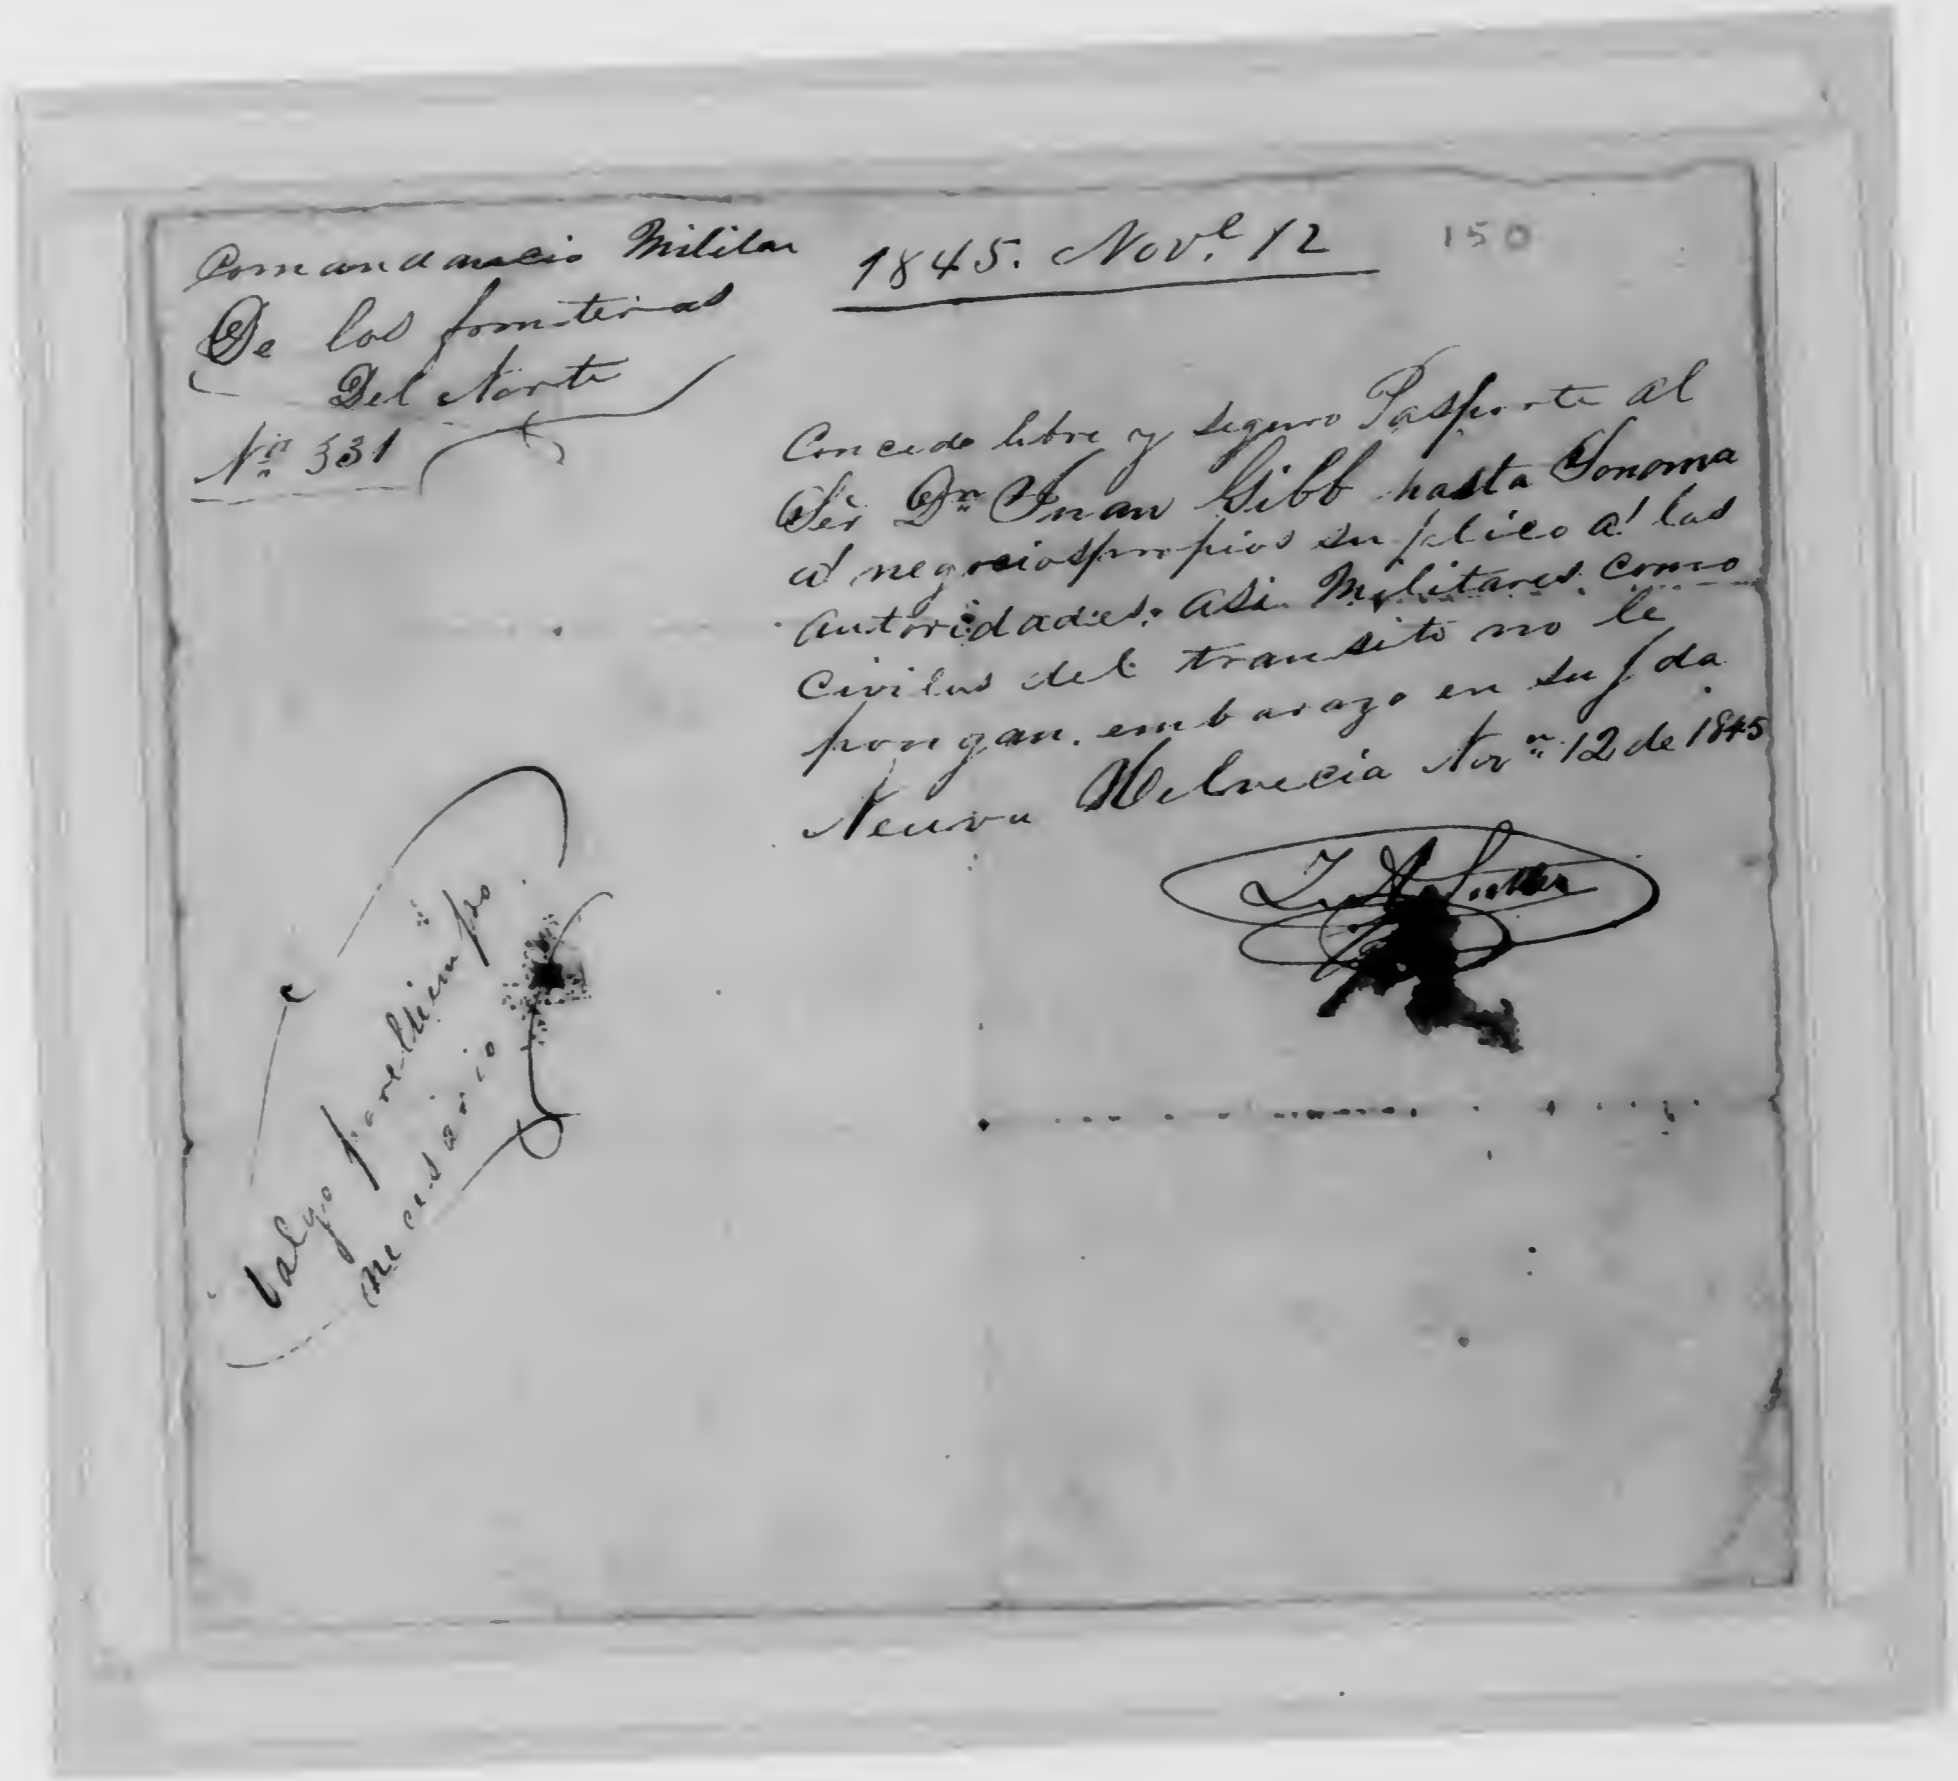 Comandancia Militar
De las fronteras
Del Norte
Nº 331
1845. Novᵉ. 12
150
Concedo libre y seguro Pasporte al
Señr Dⁿ Juan Gibb hasta Sonoma
a negocios propios suplico a las
autoridades asi Militares como
Civiles del transito no le
pongan embarazo en su
Neuva Helvecia 12 de 1845
J. A. Sutter
Valgo por el tiempo
necesario